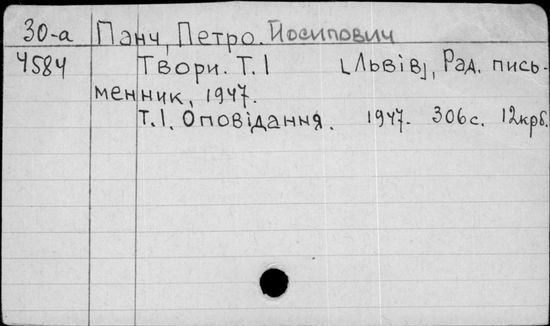 30-а Панч, Петро. Йосипович
4584 Твори. Т. І [Львів], Рад. пись-
менник, 1947.
Т. І. Оповідання. 1947. 306 с. 12крб.